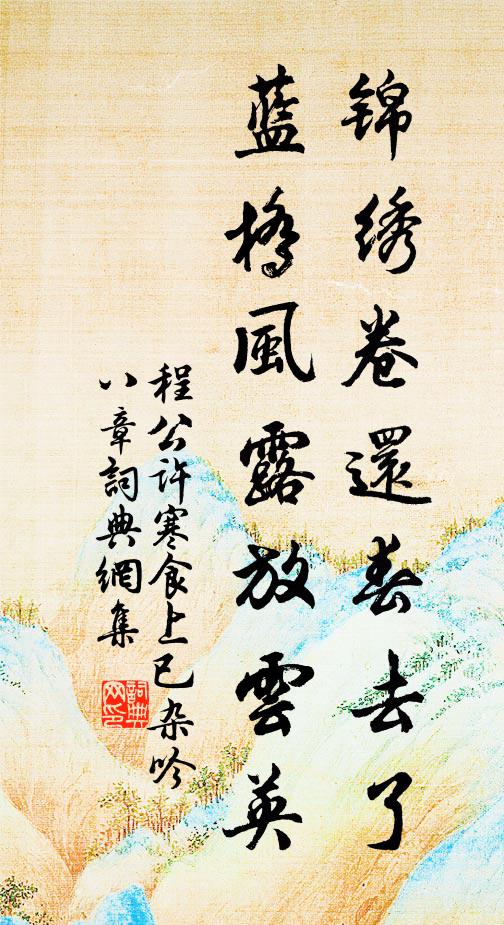 锦绣卷還春去了
蓝橋風露放雲英
程公许寒食上巳杂吟
八章詞典網集
詞典网印